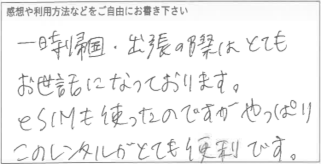 感想や利用方法などをご自由にお書き下さい
一時帰国・出張の際はとても
お世話になっております。
eSIMも使ったのですがやっぱり
このレンタルがとても便利です。